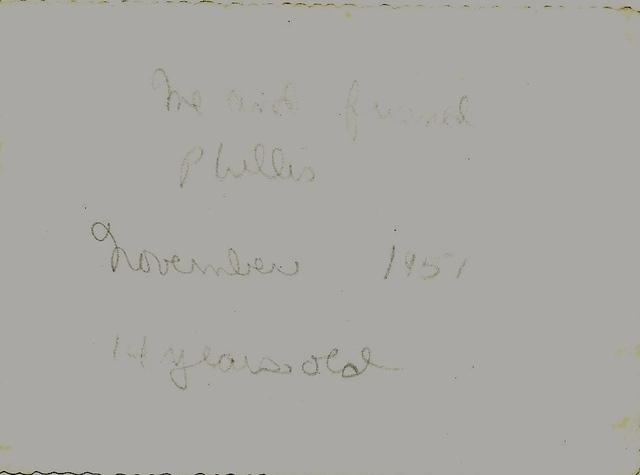 Me and friend
Phillis
November 1951
14 years old